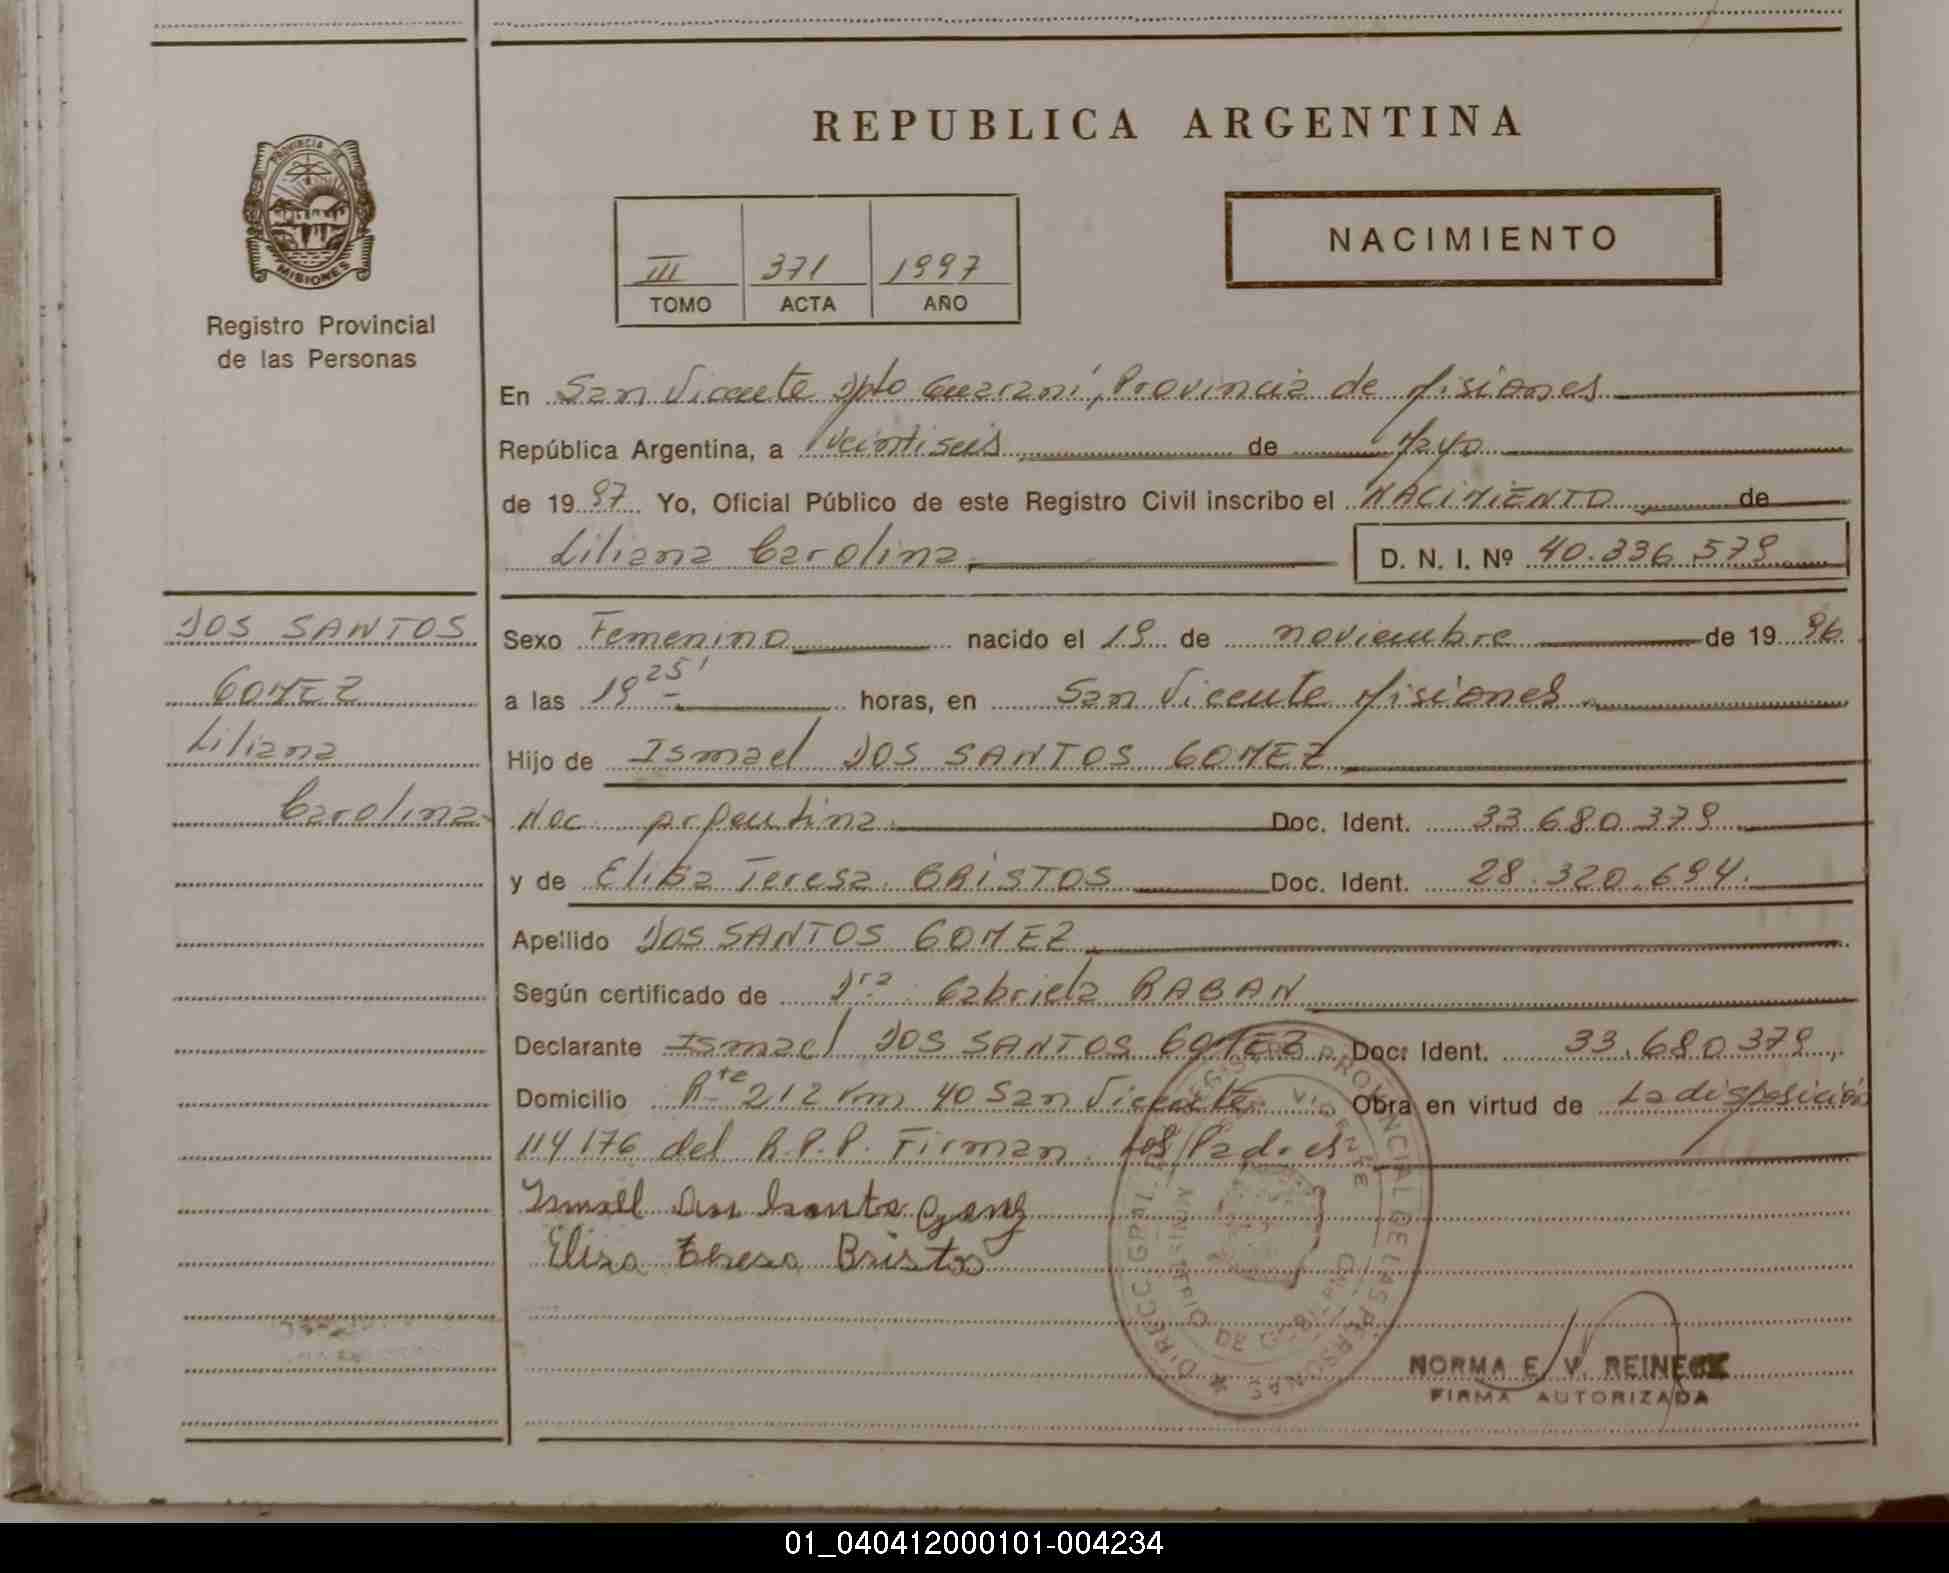 REPUBLICA ARGENTINA
PROVINCIA DE
MISIONES
Registro Provincial
de las Personas
III 371 1997
TOMO ACTA AÑO
NACIMIENTO
En San Vicente Dpto Guaraní, Provincia de Misiones
República Argentina, a veintiseis de Mayo
de 1997 Yo, Oficial Público de este Registro Civil inscribo el NACIMIENTO de
Liliana Carolina D. N. I. Nº 40.336.579
DOS SANTOS
GOMEZ
Liliana
Carolina
Sexo Femenino nacido el 19 de noviembre de 1996
a las 19 25' horas, en San Vicente Misiones
Hijo de Ismael DOS SANTOS GOMEZ
Nac. argentina Doc. Ident. 33.680.379
y de Elisa Teresa BRISTOS Doc. Ident. 28.320.694.
Apellido DOS SANTOS GOMEZ
Según certificado de Dra. Gabriela RABAN
Declarante Ismael DOS SANTOS GOMEZ Doc. Ident. 33.680.379
Domicilio Rta 212 Km 40 San Vicente Obra en virtud de La disposición
114/76 del R.P.P. Firman los Padres
Ismael Dos Santo Gomez
Elisa Teresa Bristo
DIRECC. GRAL. REGISTRO PROVINCIAL DE LAS PERSONAS
NORMA E. V. REINECK
FIRMA AUTORIZADA
01_040412000101-004234